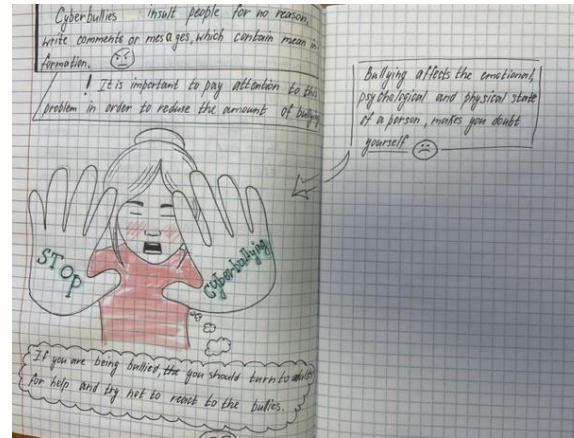 Cyberbullies insult people for no reason,
write comments or mesages, which contain mean in
formation.
! It is important to pay attention to this
problem in order to reduse the amount of bullying
Bullying affects the emotional,
psychological and physical state
of a person, makes you doubt
yourself
STOP
Cyberbullying
If you are being bullied, the you should turn to adults
for help and try not to react to the bullies.